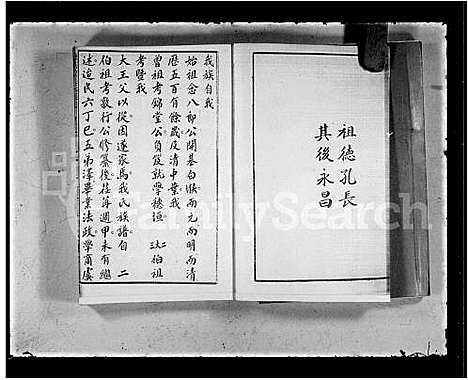 祖德孔長
其後永昌
我族自我
始祖念八郎公開基白猴而元而明而清
歷五百有餘歲及清中葉我
曾祖考錦堂公負笈就學穗垣 二伯祖
考暨我
大王父以從因遂家焉我氏族譜自 二
伯祖考敬行公修纂後荏苒週甲未有繼
述迨民六丁巳五弟澤畢業法政學甫虞
FamilySearch